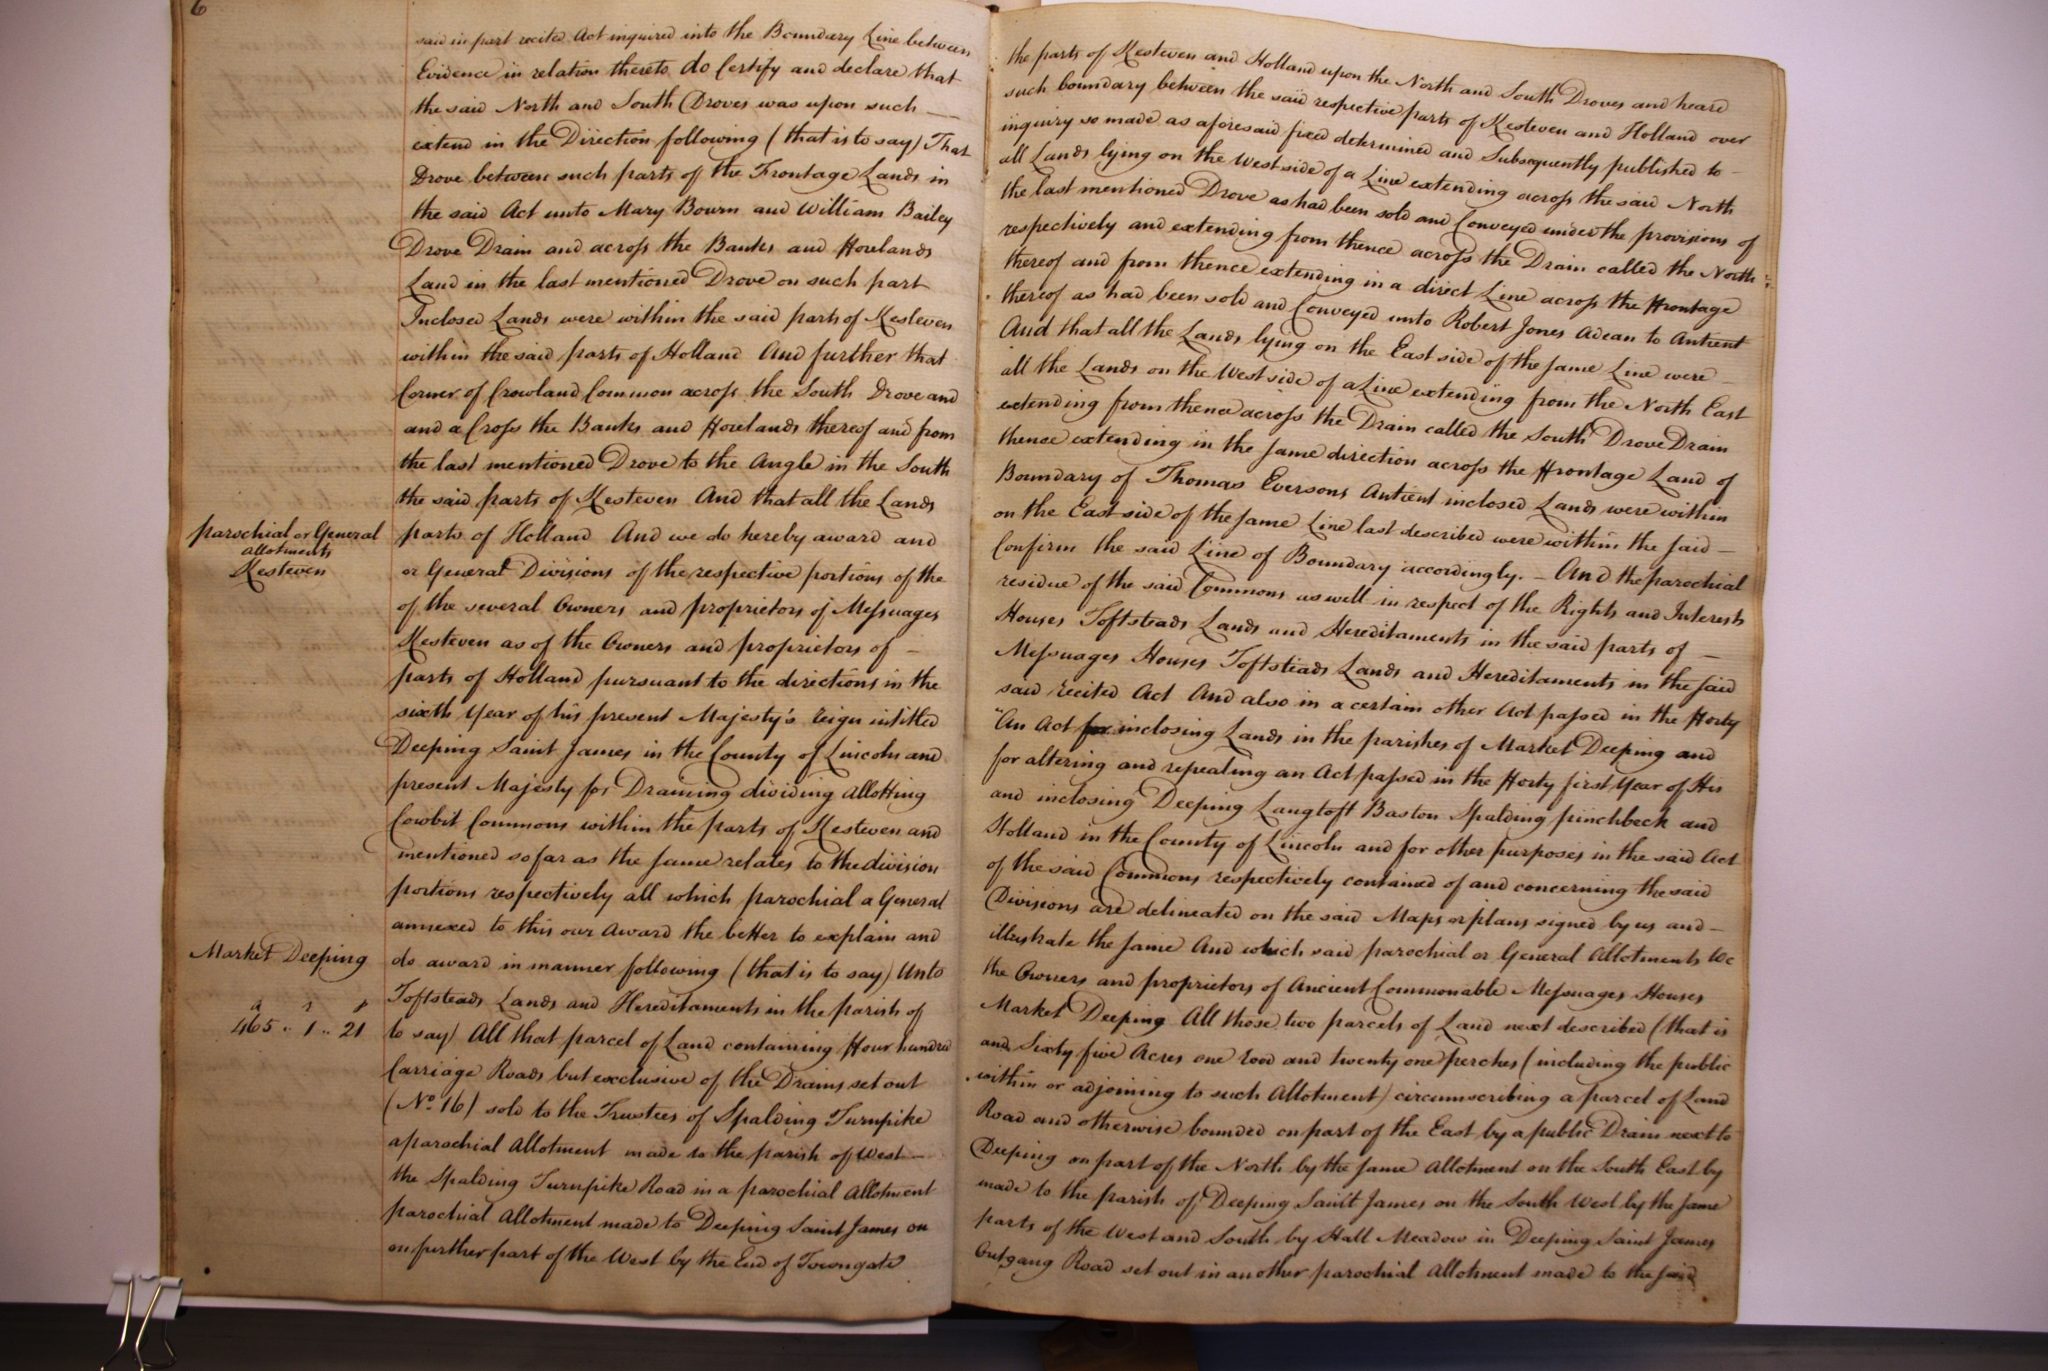 6
said in part recited Act inquired into the Boundary Line between
the parts of Kesteven and Holland upon the North and South Droves and heard
Evidence in relation thereto do Certify and declare that
such boundary between the said respective parts of Kesteven and Holland over
the said North and South Droves was upon such —
inquiry so made as aforesaid fixed determined and Subsequently published to —
extend in the Direction following (that is to say) That
all Lands lying on the West side of a Line extending across the said North
Drove between such parts of the Frontage Lands in
the last mentioned Drove as had been sold and Conveyed under the provisions of
the said Act unto Mary Bourn and William Bailey
respectively and extending from thence across the Drain called the North
Drove Drain and across the Banks and Forelands
thereof and from thence extending in a direct Line across the Frontage
Land in the last mentioned Drove on such part
thereof as had been sold and Conveyed unto Robert Jones Adean to Antient
Inclosed Lands were within the said parts of Kesteven
And that all the Lands lying on the East side of the same Line were —
within the said parts of Holland And further that
all the Lands on the West side of a Line extending from the North East
Corner of Crowland Common across the South Drove and
extending from thence across the Drain called the South Drove Drain
and a Cross the Banks and Forelands thereof and from
thence extending in the same direction across the Frontage Land of
the last mentioned Drove to the Angle in the South
Boundary of Thomas Eversons Antient inclosed Lands were within
the said parts of Kesteven And that all the Lands
on the East side of the same Line last described were within the said —
parochial or General
allotments
Kesteven
parts of Holland And we do hereby award and
Confirm the said Line of Boundary accordingly. — And the parochial
or General Divisions of the respective portions of the
residue of the said Commons as well in respect of the Rights and Interests
of the several Owners and proprietors of Messuages
Houses Toftsteads Lands and Hereditaments in the said parts of —
Kesteven as of the Owners and proprietors of —
Messuages Houses Toftsteads Lands and Hereditaments in the said
parts of Holland pursuant to the directions in the
said recited Act And also in a certain other Act passed in the Forty
sixth Year of his present Majesty's reign intitled
"An Act for inclosing Lands in the parishes of Market Deeping and
Deeping Saint James in the County of Lincoln and
for altering and repealing an Act passed in the Forty first Year of His
present Majesty for Draining dividing allotting
and inclosing Deeping Langtoft Baston Spalding pinchbeck and
Cowbit Commons within the parts of Kesteven and
Holland in the County of Lincoln and for other purposes in the said Act
mentioned so far as the same relates to the division
of the said Commons respectively contained of and concerning the said
portions respectively all which parochial a General
Divisions are delineated on the said Maps or plans signed by us and —
annexed to this our Award the better to explain and
illustrate the same And which said parochial or General Allotments We
Market Deeping
do award in manner following (that is to say) Unto
the Owners and proprietors of Ancient Commonable Messuages Houses
a r p
465 .. 1 .. 21
Toftsteads Lands and Hereditaments in the parish of
Market Deeping All those two parcels of Land next described (that is
to say) All that parcel of Land containing Four hundred
and Sixty five Acres one rood and twenty one perches (including the public
Carriage Roads but exclusive of the Drains set out
within or adjoining to such Allotment) circumscribing a parcel of Land
(No. 16) sold to the Trustees of Spalding Turnpike
Road and otherwise bounded on part of the East by a public Drain next to
a parochial Allotment made to the parish of West —
Deeping on part of the North by the same Allotment on the South East by
the Spalding Turnpike Road in a parochial Allotment
made to the parish of Deeping Saint James on the South West by the same
parochial Allotment made to Deeping Saint James on
parts of the West and South by Hall Meadow in Deeping Saint James
on further part of the West by the End of Towngate
Outgang Road set out in another parochial Allotment made to the said